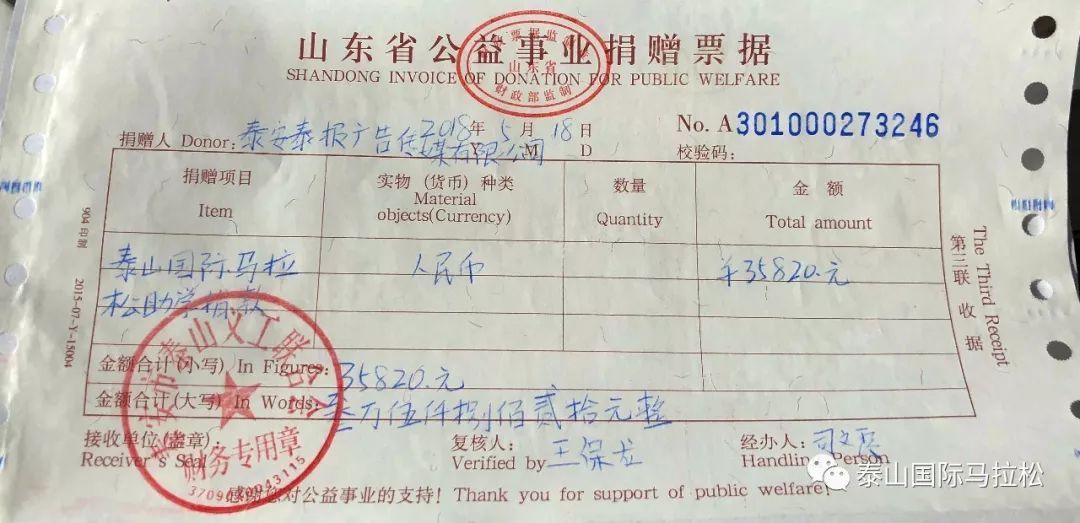 山东省公益事业捐赠票据
SHANDONG INVOICE OF DONATION FOR PUBLIC WELFARE
山东省
财政部监制
捐赠人 Donor: 泰安泰报广告传媒有限公司
2018年 5月 18日
Y M D
No. A301000273246
校验码:
捐赠项目 实物(货币)种类 数量 金额
Item Material objects(Currency) Quantity Total amount
泰山国际马拉 人民币 ¥35820.元
松助学捐款
金额合计(小写) In Figures: 35820.元
金额合计(大写) In Words: 叁万伍仟捌佰贰拾元整
接收单位(盖章): 复核人: 经办人:
Receiver's Seal Verified by 王保龙 Handling Person
泰安市泰山义工联合会
财务专用章
感谢您对公益事业的支持! Thank you for support of public welfare!
第三联 收据
The Third Receipt
904 印制 2015-07-Y-15004
泰山国际马拉松